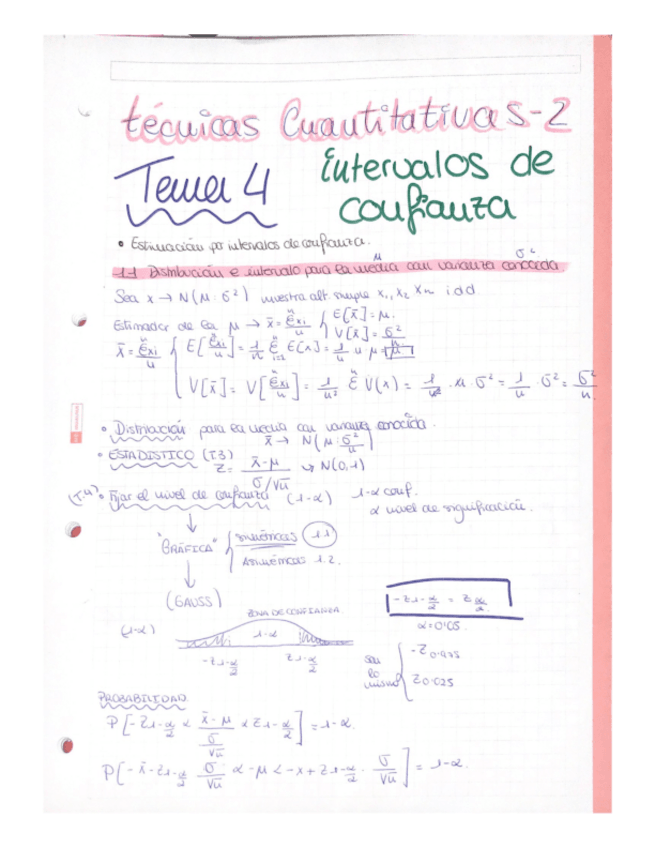 técnicas Cuantitativas-2
Tema 4 intervalos de confianza
• Estimación por intervalos de confianza.
1.1 Distribución e intervalo para la media μ con varianza σ² conocida
Sea x → N(μ; σ²) muestra alt. simple x₁, x₂ xₙ i d d
Estimador de la μ → x̄ = Σxi/n { E[x̄] = μ.
V[x̄] = σ²/n
x̄ = Σxi/n { E[Σxi/n] = 1/n Σ E(x) = 1/n · n · μ = μ
V[x̄] = V[Σxi/n] = 1/n² Σ V(x) = 1/n² · n · σ² = 1/n · σ² = σ²/n.
• Distribución para la media con varianza conocida.
x̄ → N(μ; σ²/n)
• ESTADISTICO (T.3)
Z = (x̄-μ)/(σ/√n) ↪ N(0,1)
(T.4) • Fijar el nivel de confianza (1-α) 1-α conf.
α nivel de significación.
"GRÁFICA" { simétricos (1.1)
Asimétricos 1.2.
(GAUSS)
ZONA DE CONFIANZA
(1-α) 1-α
-Z1-α/2 Z1-α/2
-Z1-α/2 = Zα/2
α=0'05
son lo mismo { -Z0'975
Z0'025
PROBABILIDAD
P[-Z1-α/2 < (x̄-μ)/(σ/√n) < Z1-α/2] = 1-α.
P[-x̄-Z1-α/2 · σ/√n < -μ < -x+Z1-α/2 · σ/√n] = 1-α.